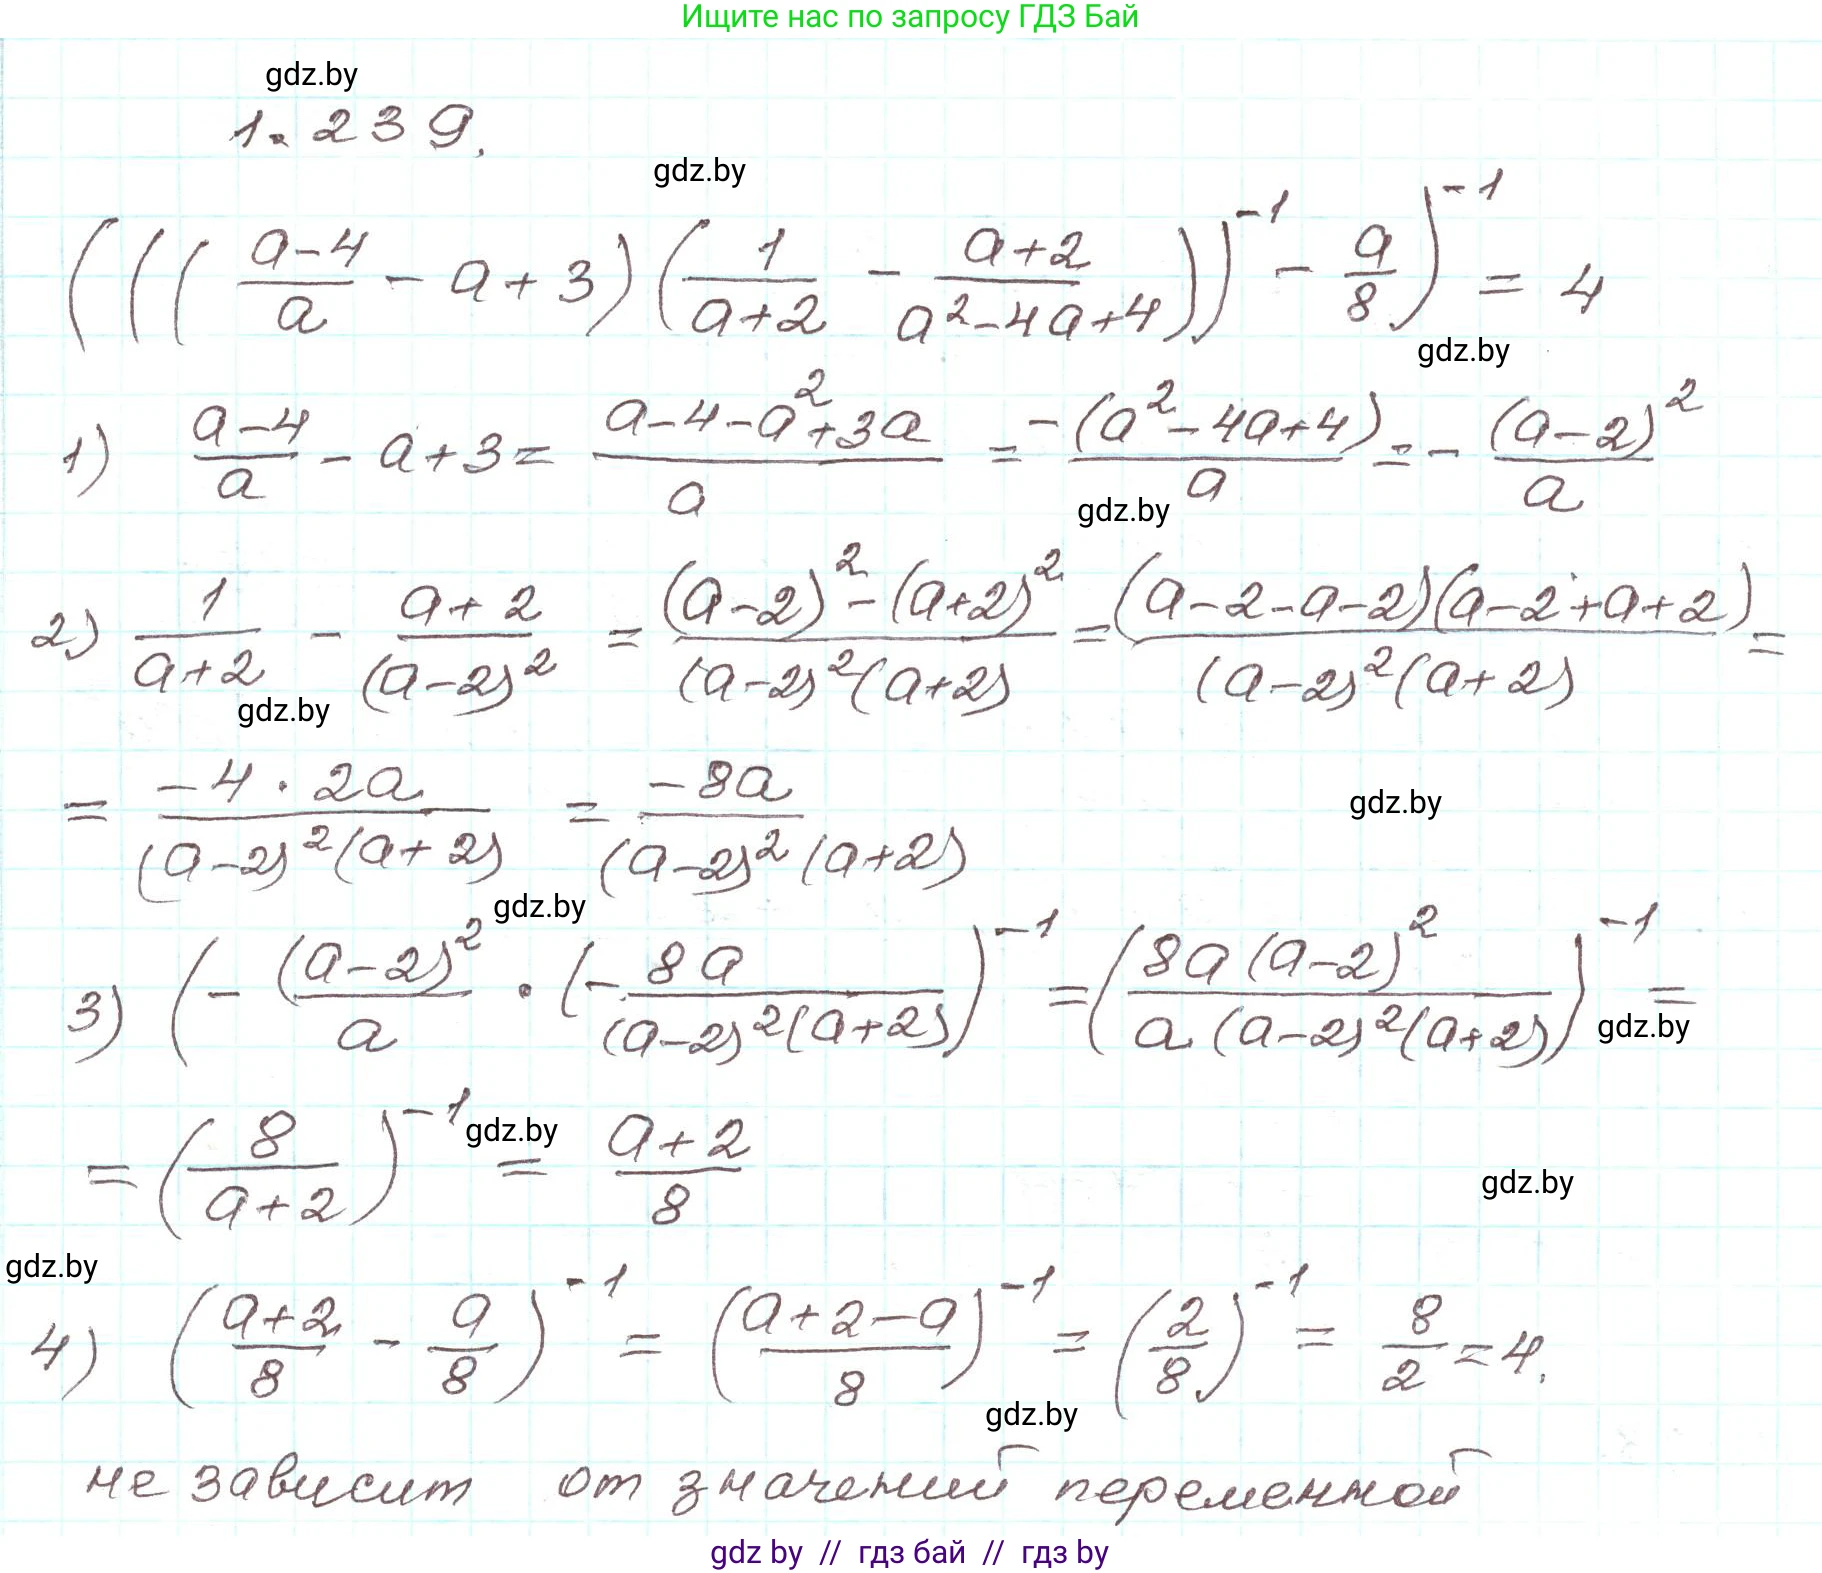 Ищите нас по запросу ГДЗ Бай
gdz.by
1.239.
gdz.by
(((\frac{a-4}{a} - a+3)(\frac{1}{a+2} - \frac{a+2}{a^2-4a+4}))^{-1} - \frac{a}{8})^{-1} = 4
gdz.by
1) \frac{a-4}{a} - a+3 = \frac{a-4-a^2+3a}{a} = \frac{-(a^2-4a+4)}{a} = -\frac{(a-2)^2}{a}
gdz.by
2) \frac{1}{a+2} - \frac{a+2}{(a-2)^2} = \frac{(a-2)^2-(a+2)^2}{(a-2)^2(a+2)} = \frac{(a-2-a-2)(a-2+a+2)}{(a-2)^2(a+2)} =
gdz.by
= \frac{-4·2a}{(a-2)^2(a+2)} = \frac{-8a}{(a-2)^2(a+2)}
gdz.by
gdz.by
3) (-\frac{(a-2)^2}{a} · (-\frac{8a}{(a-2)^2(a+2)})^{-1} = (\frac{8a(a-2)^2}{a.(a-2)^2(a+2)})^{-1} =
gdz.by
= (\frac{8}{a+2})^{-1} = \frac{a+2}{8}
gdz.by
gdz.by
gdz.by
4) (\frac{a+2}{8} - \frac{a}{8})^{-1} = (\frac{a+2-a}{8})^{-1} = (\frac{2}{8})^{-1} = \frac{8}{2} = 4.
gdz.by
не зависит от значений переменной
gdz by // гдз бай // гдз by